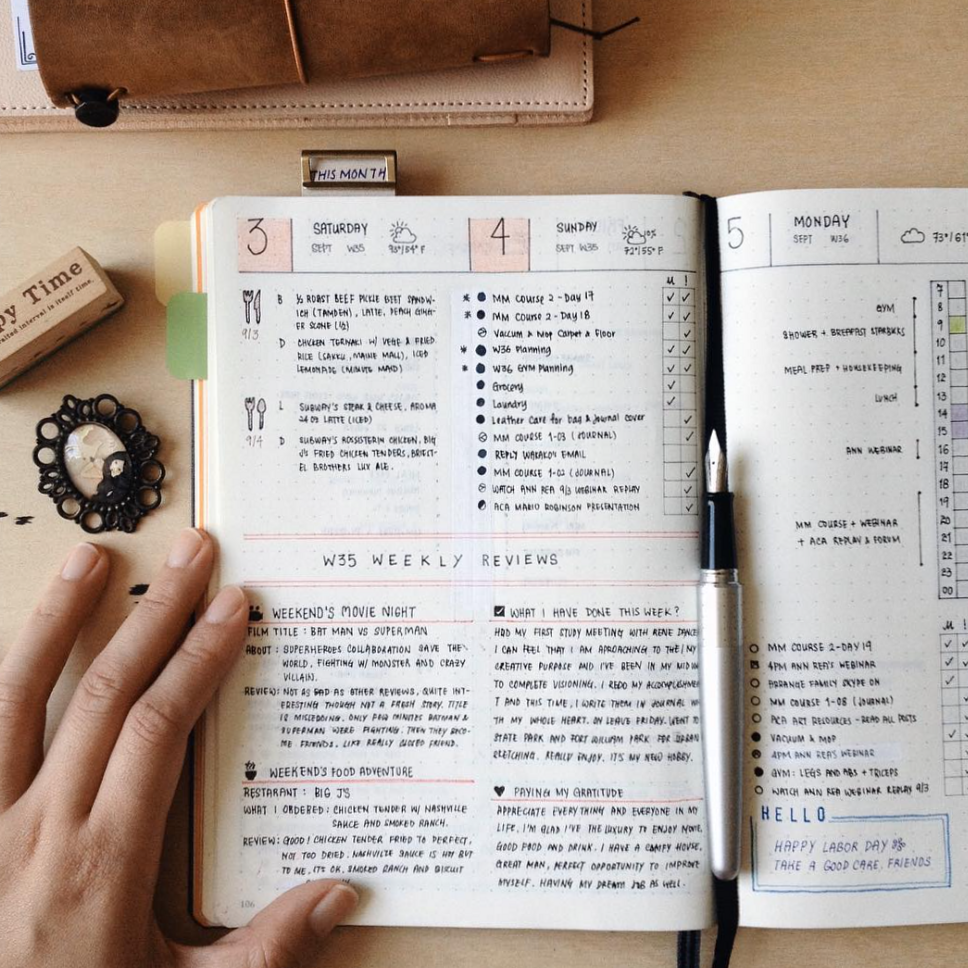 THIS MONTH
py Time
3
SATURDAY
SEPT W35
93°/64° F
4
SUNDAY
SEPT W35
72°/55° F
5
MONDAY
SEPT W36
73°/61°
9/3
B ½ ROAST BEEF PICKLE BEET SANDW-
ICH (TANDEM), LATTE, PEACH GING-
ER SCONE (½)
D CHICKEN TERIYAKI W/ VEGE & FRIED
RICE (SAKKU, MAINE MALL), ICED
LEMONADE (MINUTE MAID)
9/4
L SUBWAY'S STEAK & CHEESE, AROMA
24 OZ LATTE (ICED)
D SUBWAY'S ROSSISTERIN CHICKEN, BIG
J'S FRIED CHICKEN TENDERS,
EL BROTHERS LUX ALE.
MM COURSE 2 - DAY 17
MM COURSE 2 - DAY 18
VACUUM & MOP CARPET & FLOOR
W36 PLANNING
W36 GYM PLANNING
GROCERY
LAUNDRY
LEATHER CARE FOR BAG & JOURNAL COVER
MM COURSE 1-03 (JOURNAL)
REPLY WAKAKO'S EMAIL
MM COURSE 1-02 (JOURNAL)
WATCH ANN REA 9/3 WEBINAR REPLAY
ACA MARIO ROBINSON PRESENTATION
W35 WEEKLY REVIEWS
WEEKEND'S MOVIE NIGHT
FILM TITLE : BAT MAN VS SUPERMAN
ABOUT : SUPERHEROES COLLABORATION SAVE THE
WORLD, FIGHTING W/ MONSTER AND CRAZY
VILLAIN.
REVIEW: NOT AS BAD AS OTHER REVIEWS, QUITE INT-
ERESTING THOUGH NOT A FRESH STORY. TITLE
IS MISLEDDING. ONLY FEW MINUTES BATMAN &
SUPERMAN WERE FIGHTING, THEN THEY BECO-
ME FRIENDS. LIKE REALLY CLOSED FRIEND.
WEEKEND'S FOOD ADVENTURE
RESTARANT : BIG J'S
WHAT I ORDERED : CHICKEN TENDER W/ NASHVILLE
SAUCE AND SMOKED RANCH.
REVIEW: GOOD! CHICKEN TENDER FRIED TO PERFECT,
NOT TOO DRIED. NASHVILLE SAUCE IS HOT BUT
TO ME, IT'S OK. SMOKED RANCH AND BISCUIT
106
WHAT I HAVE DONE THIS WEEK?
HAD MY FIRST STUDY MEETING WITH RENE DANCE
I CAN FEEL THAT I AM APROACHING TO THE/MY
CREATIVE PURPOSE AND I'VE BEEN IN MY
TO COMPLETE VISIONING. I REDO MY ACCOMPLISHME
T AND THIS TIME, I WRITE THEM IN JOURNAL WI
TH MY WHOLE HEART. ON LEAVE FRIDAY, WENT TO
STATE PARK AND FORT WILLIAM PARK FOR URBAN
SKETCHING. REALLY ENJOY. IT'S MY NEW HOBBY.
PAYING MY GRATITUDE
APPRECIATE EVERYTHING AND EVERYONE IN MY
LIFE, I'M GLAD I'VE THE LUXURY TO ENJOY MOVIE,
GOOD FOOD AND DRINK. I HAVE A COMFY HOUSE,
GREAT MAN, PERFECT OPPORTUNITY TO IMPROVE
MYSELF, HAVING MY DREAM JOB AS WELL.
GYM
SHOWER + BREAKFAST STARBUCKS
MEAL PREP + HOUSEKEEPING
LUNCH
ANN WEBINAR
MM COURSE + WEBINAR
+ ACA REPLAY & FORUM
7
8
9
10
11
12
13
14
15
16
17
18
19
20
21
22
23
00
MM COURSE 2-DAY 19
4PM ANN REA'S WEBINAR
ARRANGE FAMILY SKYPE ON
MM COURSE 1-08 (JOURNAL)
ACA ART RESOURCES - READ ALL POSTS
VACUUM & MOP
4PM ANN REA'S WEBINAR
GYM: LEGS AND ABS + TRICEPS
WATCH ANN REA WEBINAR REPLAY 9/3
HELLO
HAPPY LABOR DAY
TAKE A GOOD CARE, FRIENDS